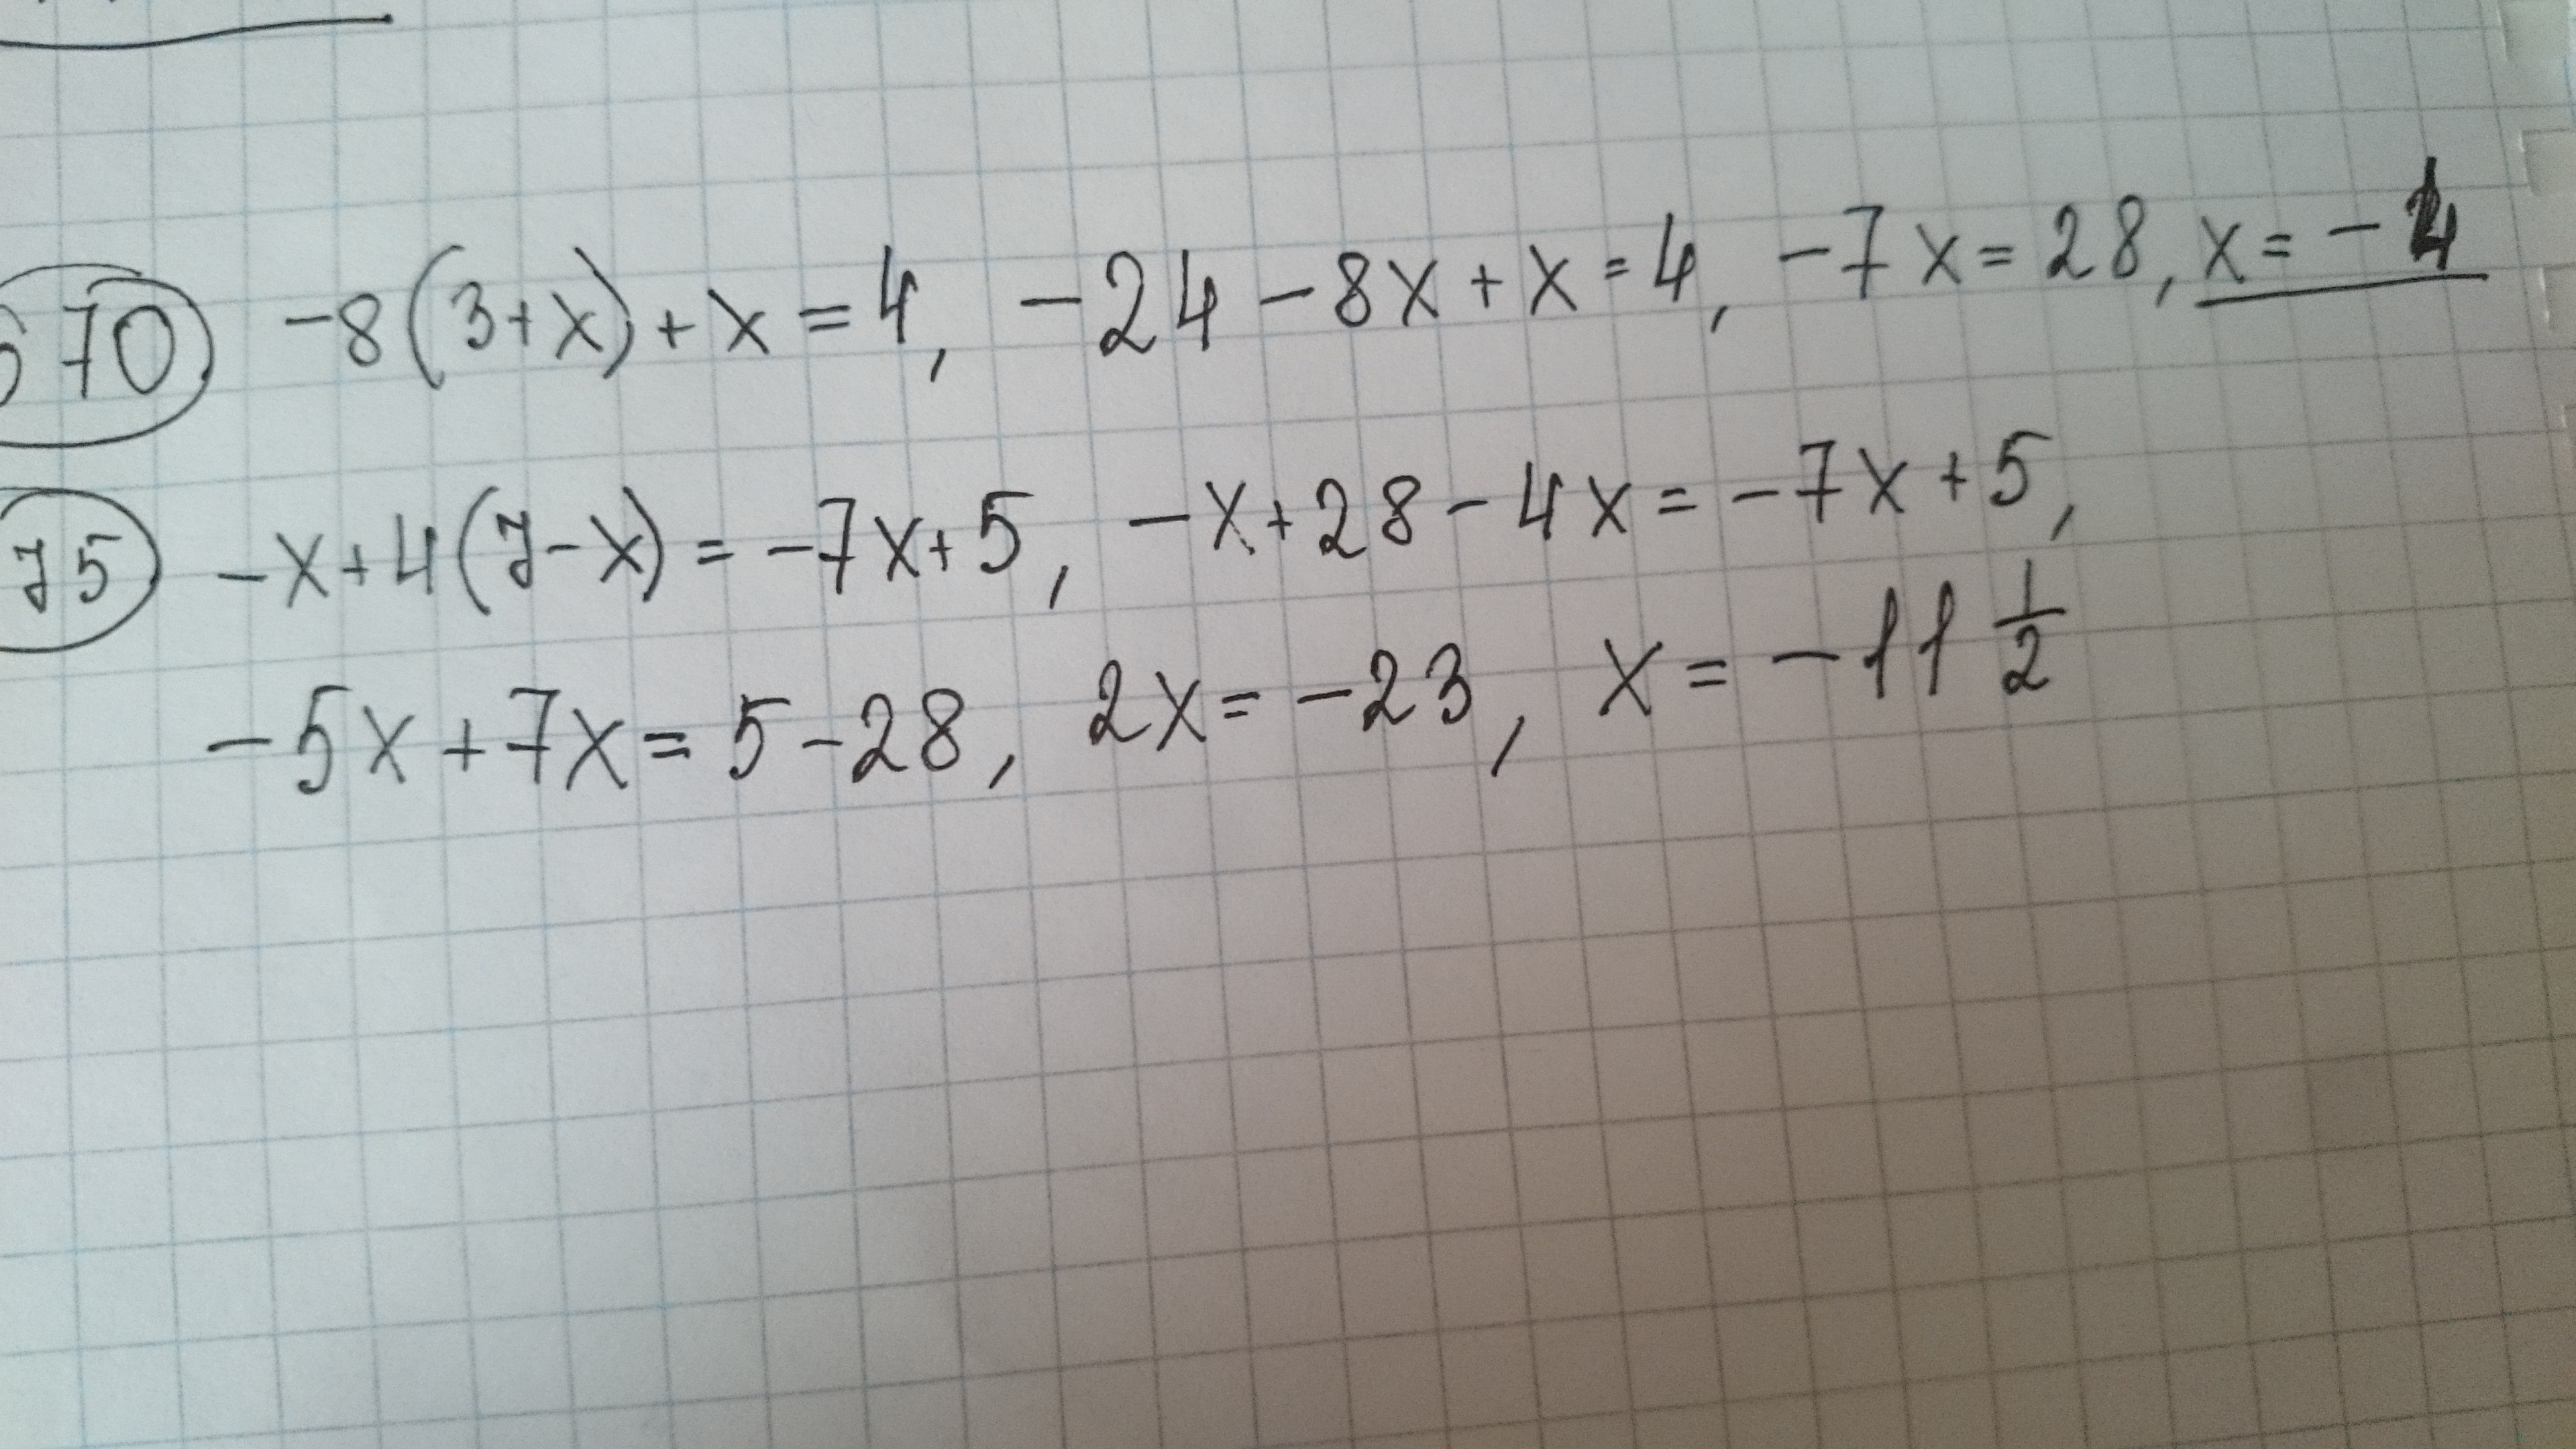 70 -8(3+x)+x=4, -24-8x+x=4, -7x=28, x=-4
75 -x+4(7-x)=-7x+5, -x+28-4x=-7x+5,
-5x+7x=5-28, 2x=-23, x=-11 1/2